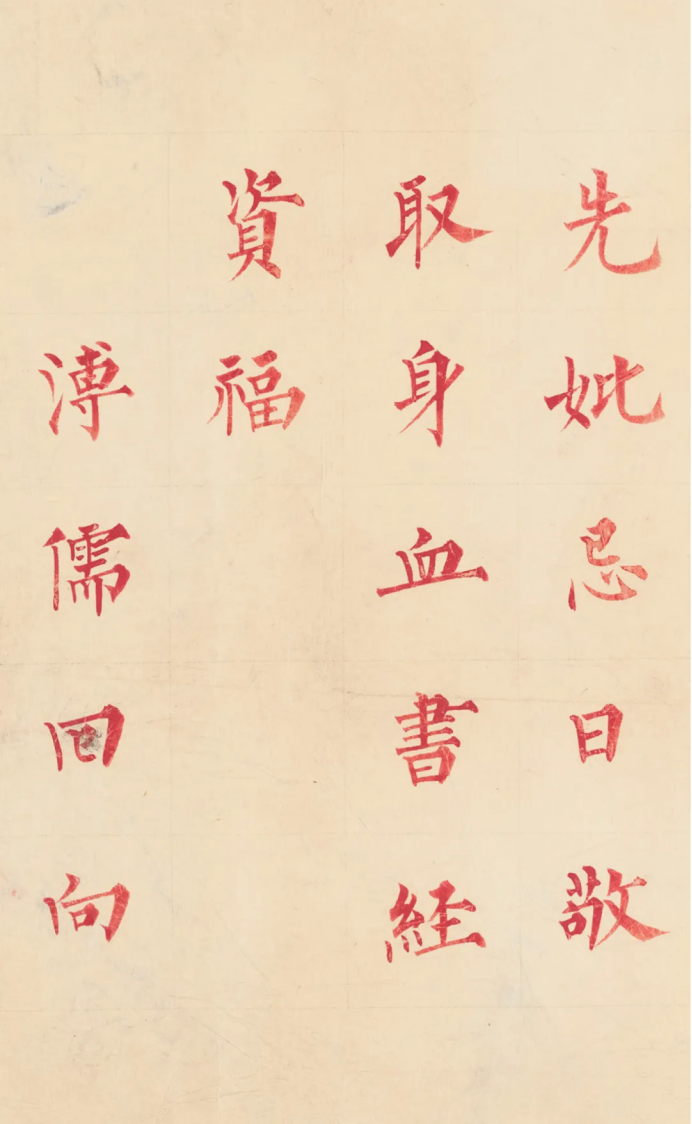 先妣忌日敬
取身血書経
資福
溥儒回向